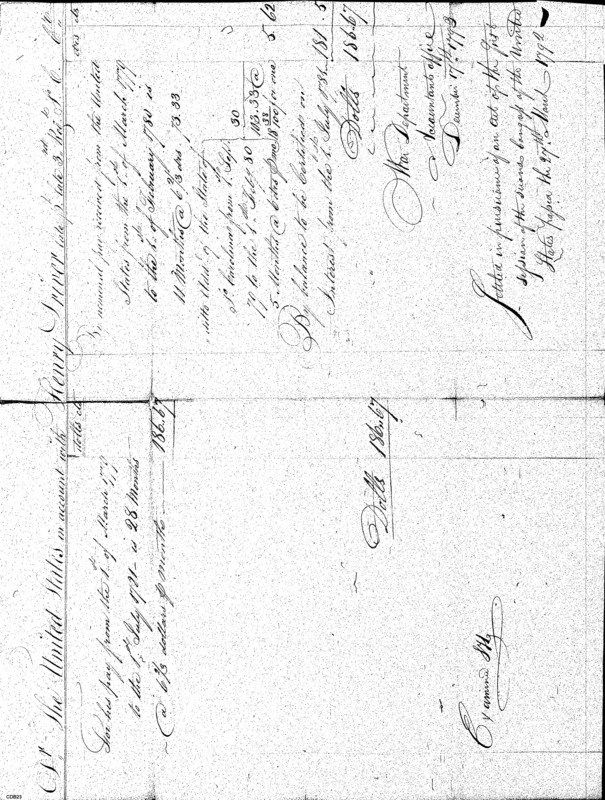 Dr The United States in account with Henry Driver late 3. Regt N. C. Cr
dolls cts
For his pay from the 1st of March 1779
to the 1st July 1781 is 28 Months
@ 6 2/3 dollars p month 186.67
Dolls 186.67
Examined
dols cts
By nominal pay received from the United
States from the 1st of March 1779
to the 1st of February 1780 is
11 Months @ 6 2/3 dols 73.33
ditto Amt of the State of
No Carolina from 1st Sept
79 to the 1st Feby 80 30
103.33 @
5 Months @ 6 dols for one 5.62
By balance to be Certified on
Interest from the 1st July 1781 181.5
Dolls 186.67
War Department
Accountants office
December 17th 1793
Settled in pursuance of an act of the first
session of the second Congress of the United
States passed the 27th March 1792
CDB23